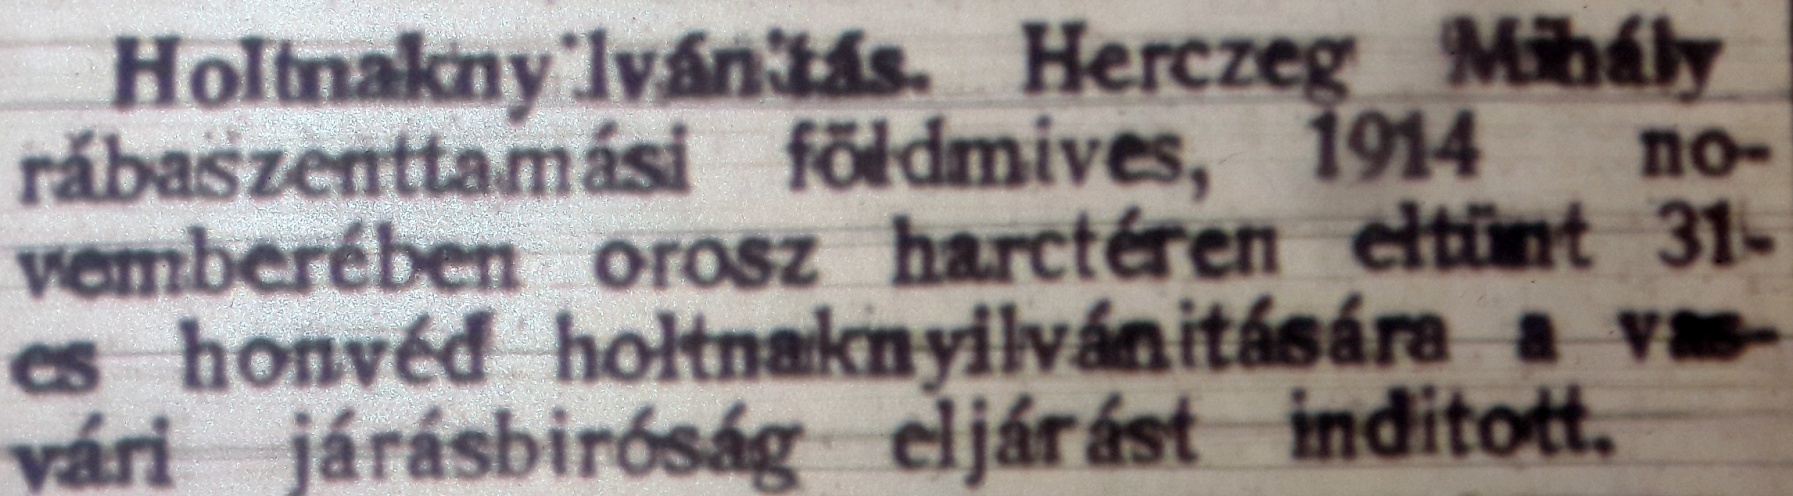 Holtnaknyilvánitás. Herczeg Mihály
rábaszenttamási földmives, 1914 no-
vemberében orosz harctéren eltünt 31-
es honvéd holtnaknyilvánitására a vas-
vári járásbiróság eljárást inditott.